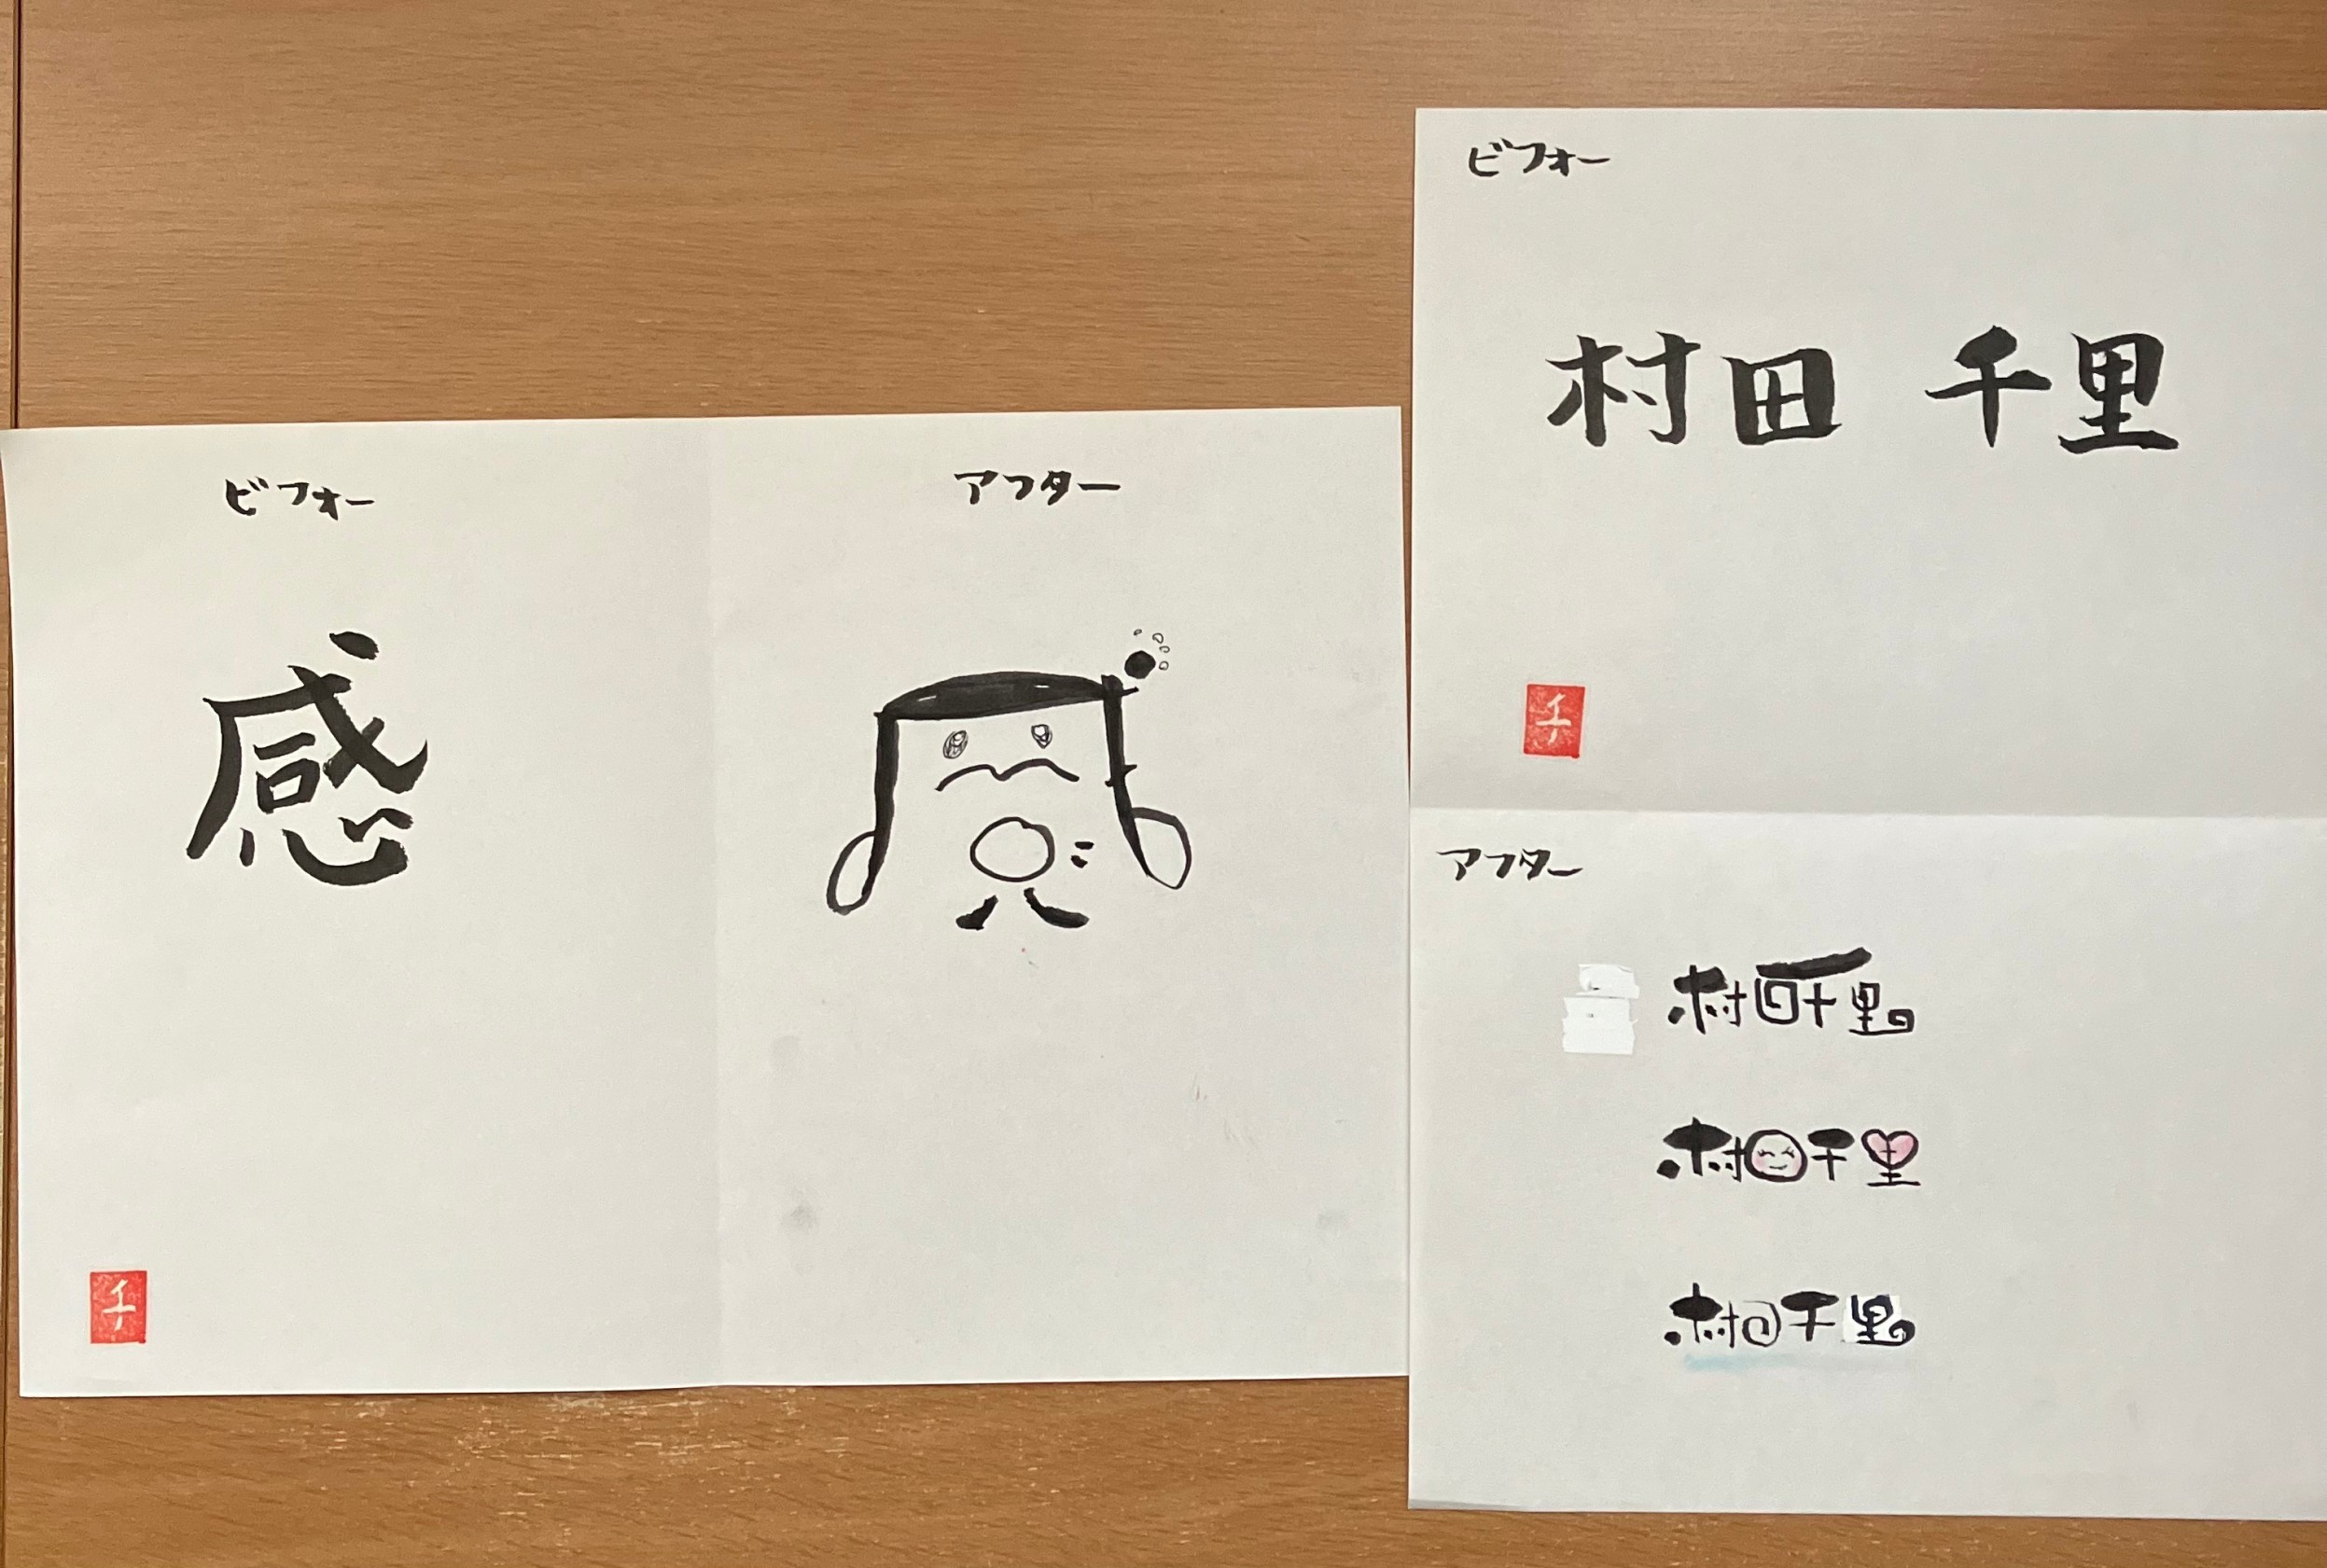 ビフォー
アフター
感
千
ビフォー
村田 千里
千
アフター
村田千里
村田千里
村田千里